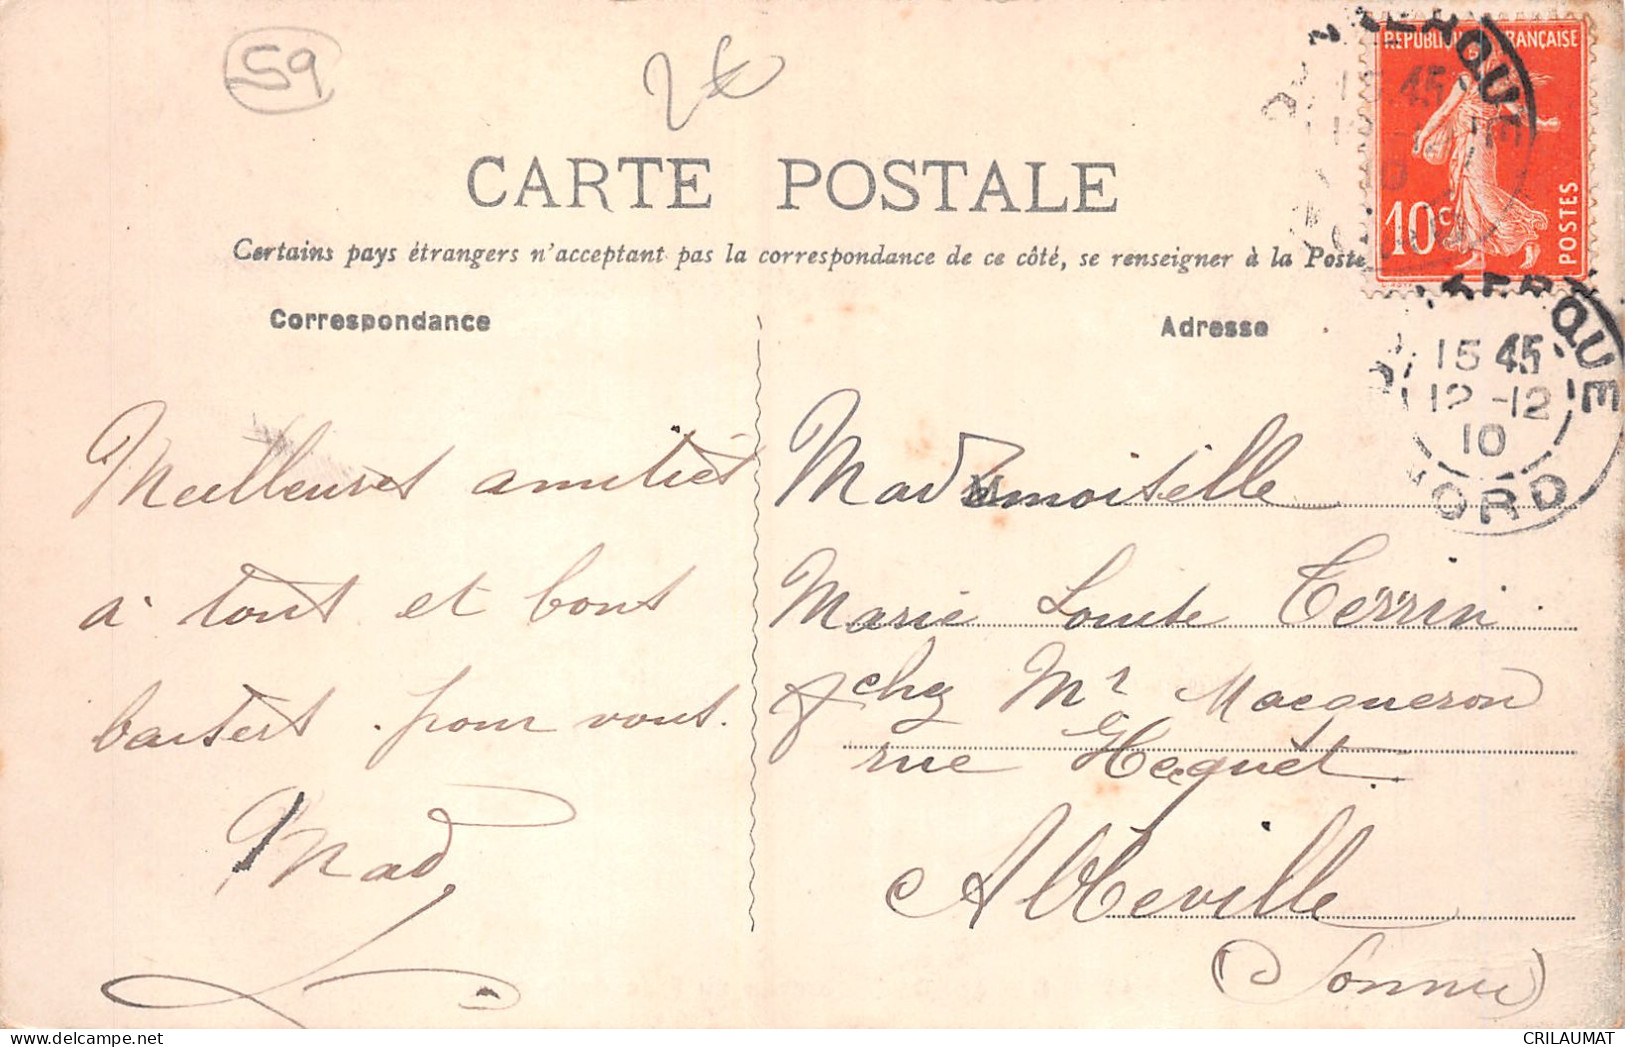 59
2€
CARTE POSTALE
Certains pays étrangers n'acceptant pas la correspondance de ce côté, se renseigner à la Poste
Correspondance
Adresse
REPUBLIQUE FRANÇAISE
10c
POSTES
15 45
12-12
10
NORD
Meilleures amitiés
à tous et bons
baisers pour vous.
Mad
Mademoiselle
Marie Louise Terrin
chez Mr Macqueron
rue Hecquet
Abbeville
(Somme)
CRILAUMAT